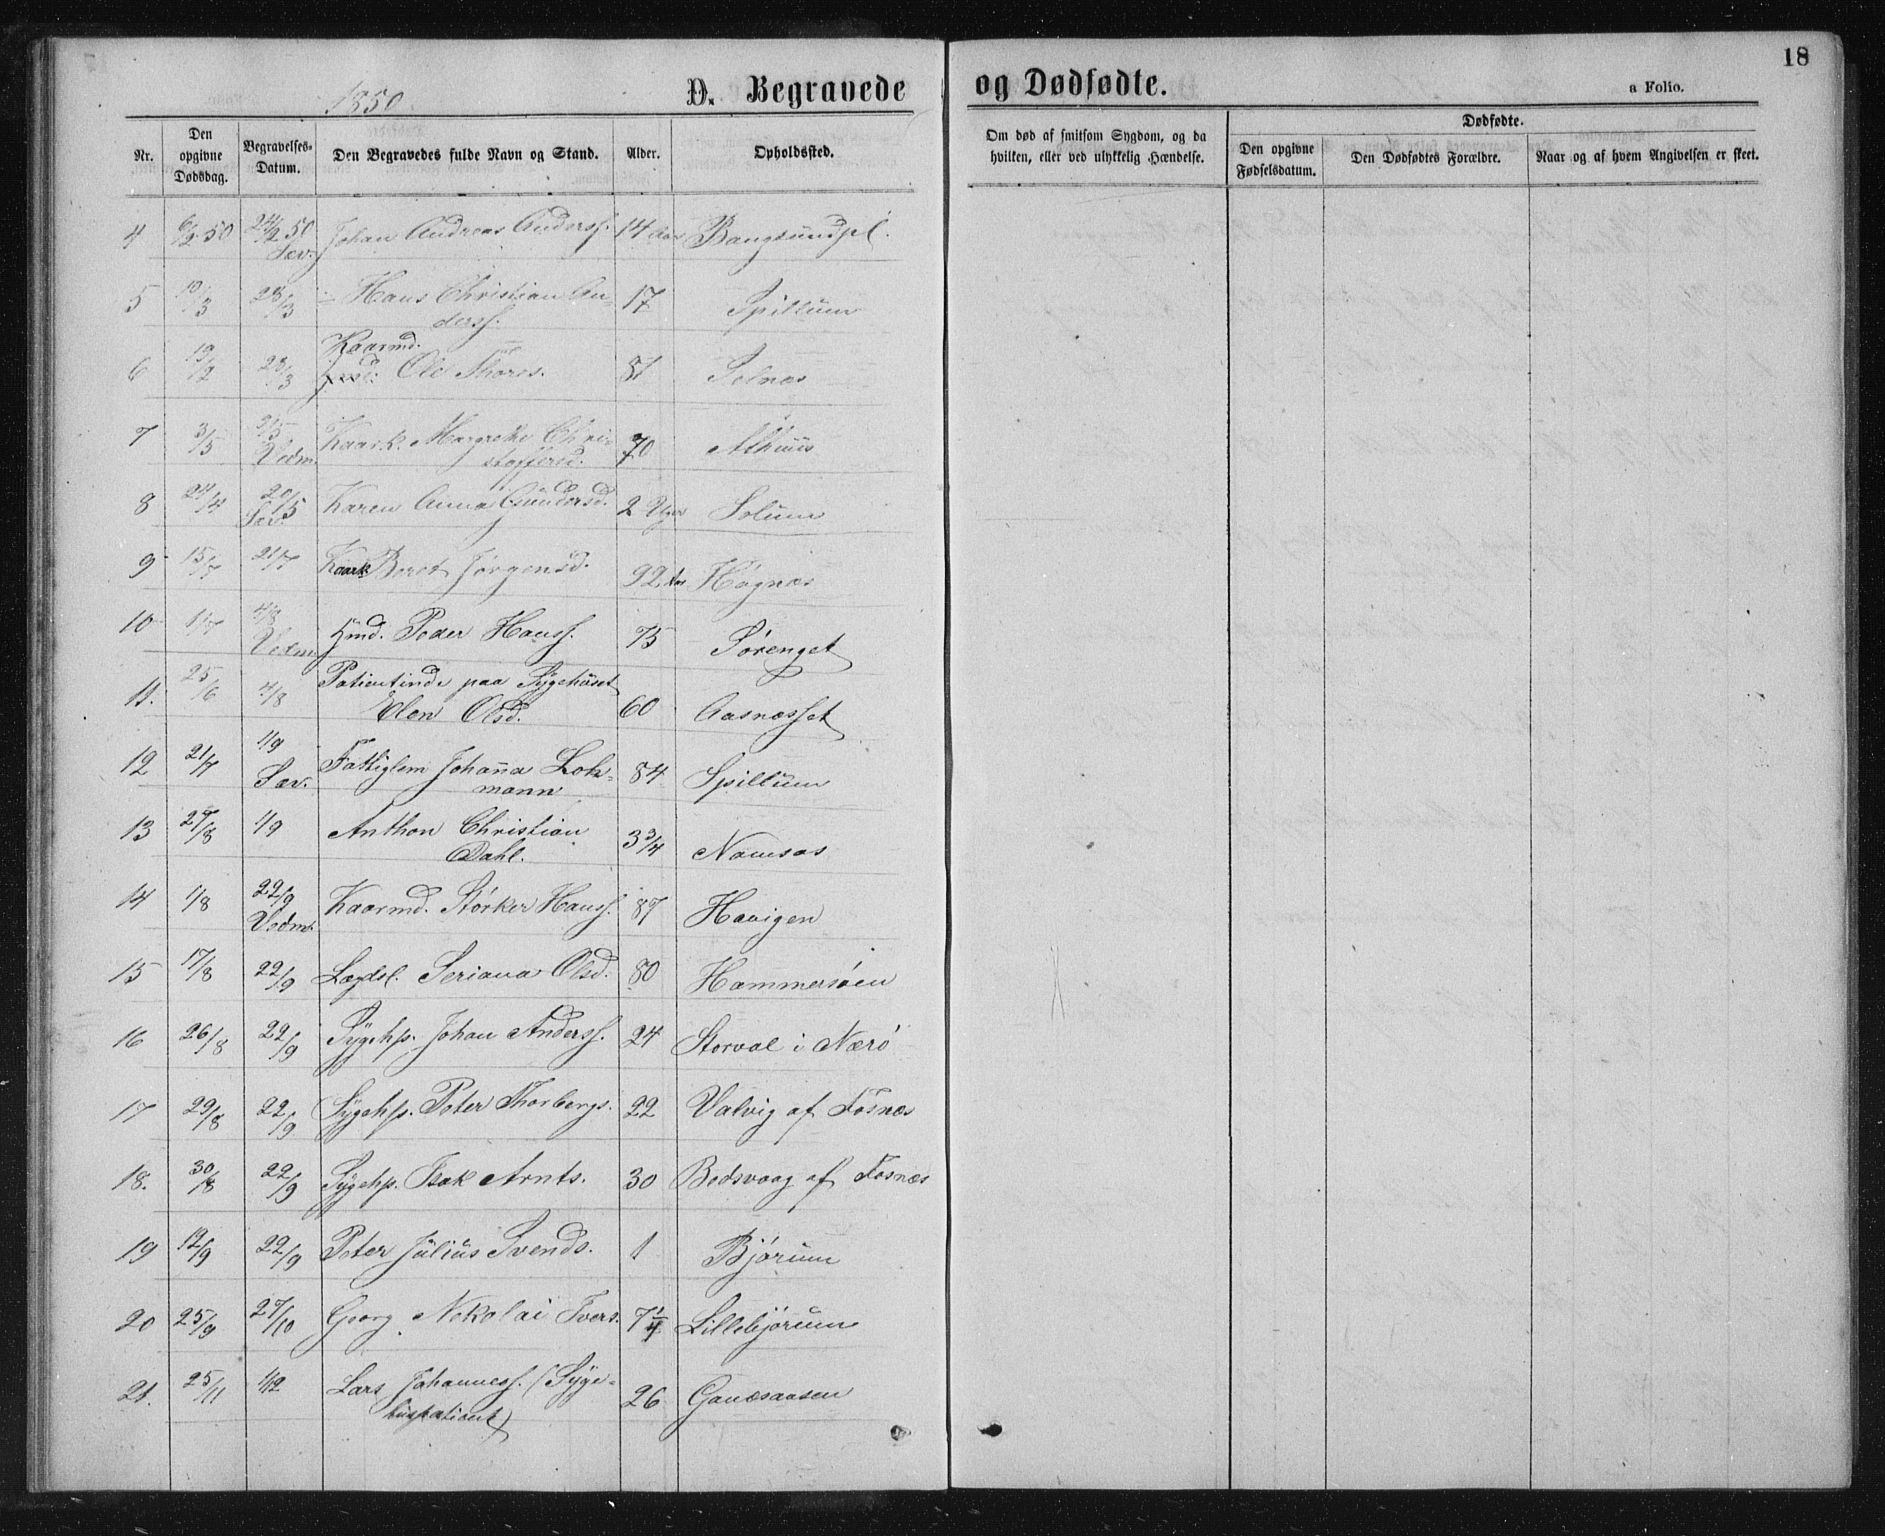 1850
D. Begravede
og Dødfødte.
18
a Folio.
Nr.
Den opgivne Dødsdag.
Begravelses-Datum.
Den Begravedes fulde Navn og Stand.
Alder.
Opholdssted.
Om død af smitsom Sygdom, og da hvilken, eller ved ulykkelig Hændelse.
Dødfødte.
Den opgivne Fødselsdatum.
Den Dødfødtes Forældre.
Naar og af hvem Angivelsen er skeet.
4 6/2 50 24/2 50 Johan Andreas Anderss. 14 Aar Bangsundpl.
Sæv.
5 10/3 28/3 – Hans Christian An- 17 Spillum
derss.
Kaarmd.
6 19/2 28/3 Ole Thores. 81 Selnæs
7 3/5 9/5 Kaark. Margrethe Chri- 70 Althuus
Vedm. stoffersd.
8 24/4 20/5 Karen Anna Gundersd. 2 Uger Solum
Sæv.
9 15/7 21/7 Kaark Beret Jørgensd. 92 Aar Høgnæs
10 1/7 4/8 Gmd. Peder Hanss. 75 Sørenget
Vedm.
11. 25/6 4/8 Patientinde paa Sygehuset 60 Aasnæsset
Elen Olsd.
12 21/7 1/9 Fattiglem Johanna Loh- 84 Spillum
Sæv. mann
13 29/8 1/9 Anthon Christian 3 3/4 Namsos
Dahl.
14 1/8 22/9 Kaarmd. Størker Hanss. 87 Havigen
Vedm.
15 17/8 22/9 Lægdsl. Seriana Olsd. 80 Hammersøen
16 26/8 22/9 Sygehp. Johan Anderss. 24 Storval i Nærø
17 29/8 22/9 Sygehp. Peter Thorbergs. 22 Valvig af Fosnæs
18. 30/8 22/9 Sygehp. Isak Arnts. 30 Bodsvaag af Fosnæs
19 12/9 22/9 Peter Julius Svends. 1 Bjørum
20 25/9 27/10 Georg Nekolai Ivers. 7 1/4 Lillebjørum
21. 25/11 1/12 Lars Johanness. (Syge- 26 Ganæsaasen
huspatient)